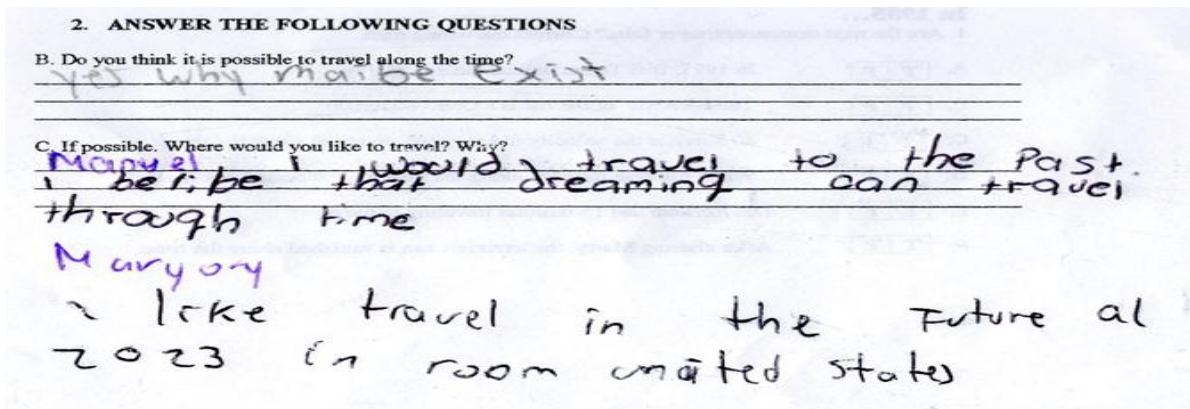 2. ANSWER THE FOLLOWING QUESTIONS
B. Do you think it is possible to travel along the time?
yes why maibe exist
C. If possible. Where would you like to travel? Why?
Manuel I would travel to the Past.
I belibe that dreaming can travel
through time
Maryory
I like travel in the Future al
2023 in room unaited states